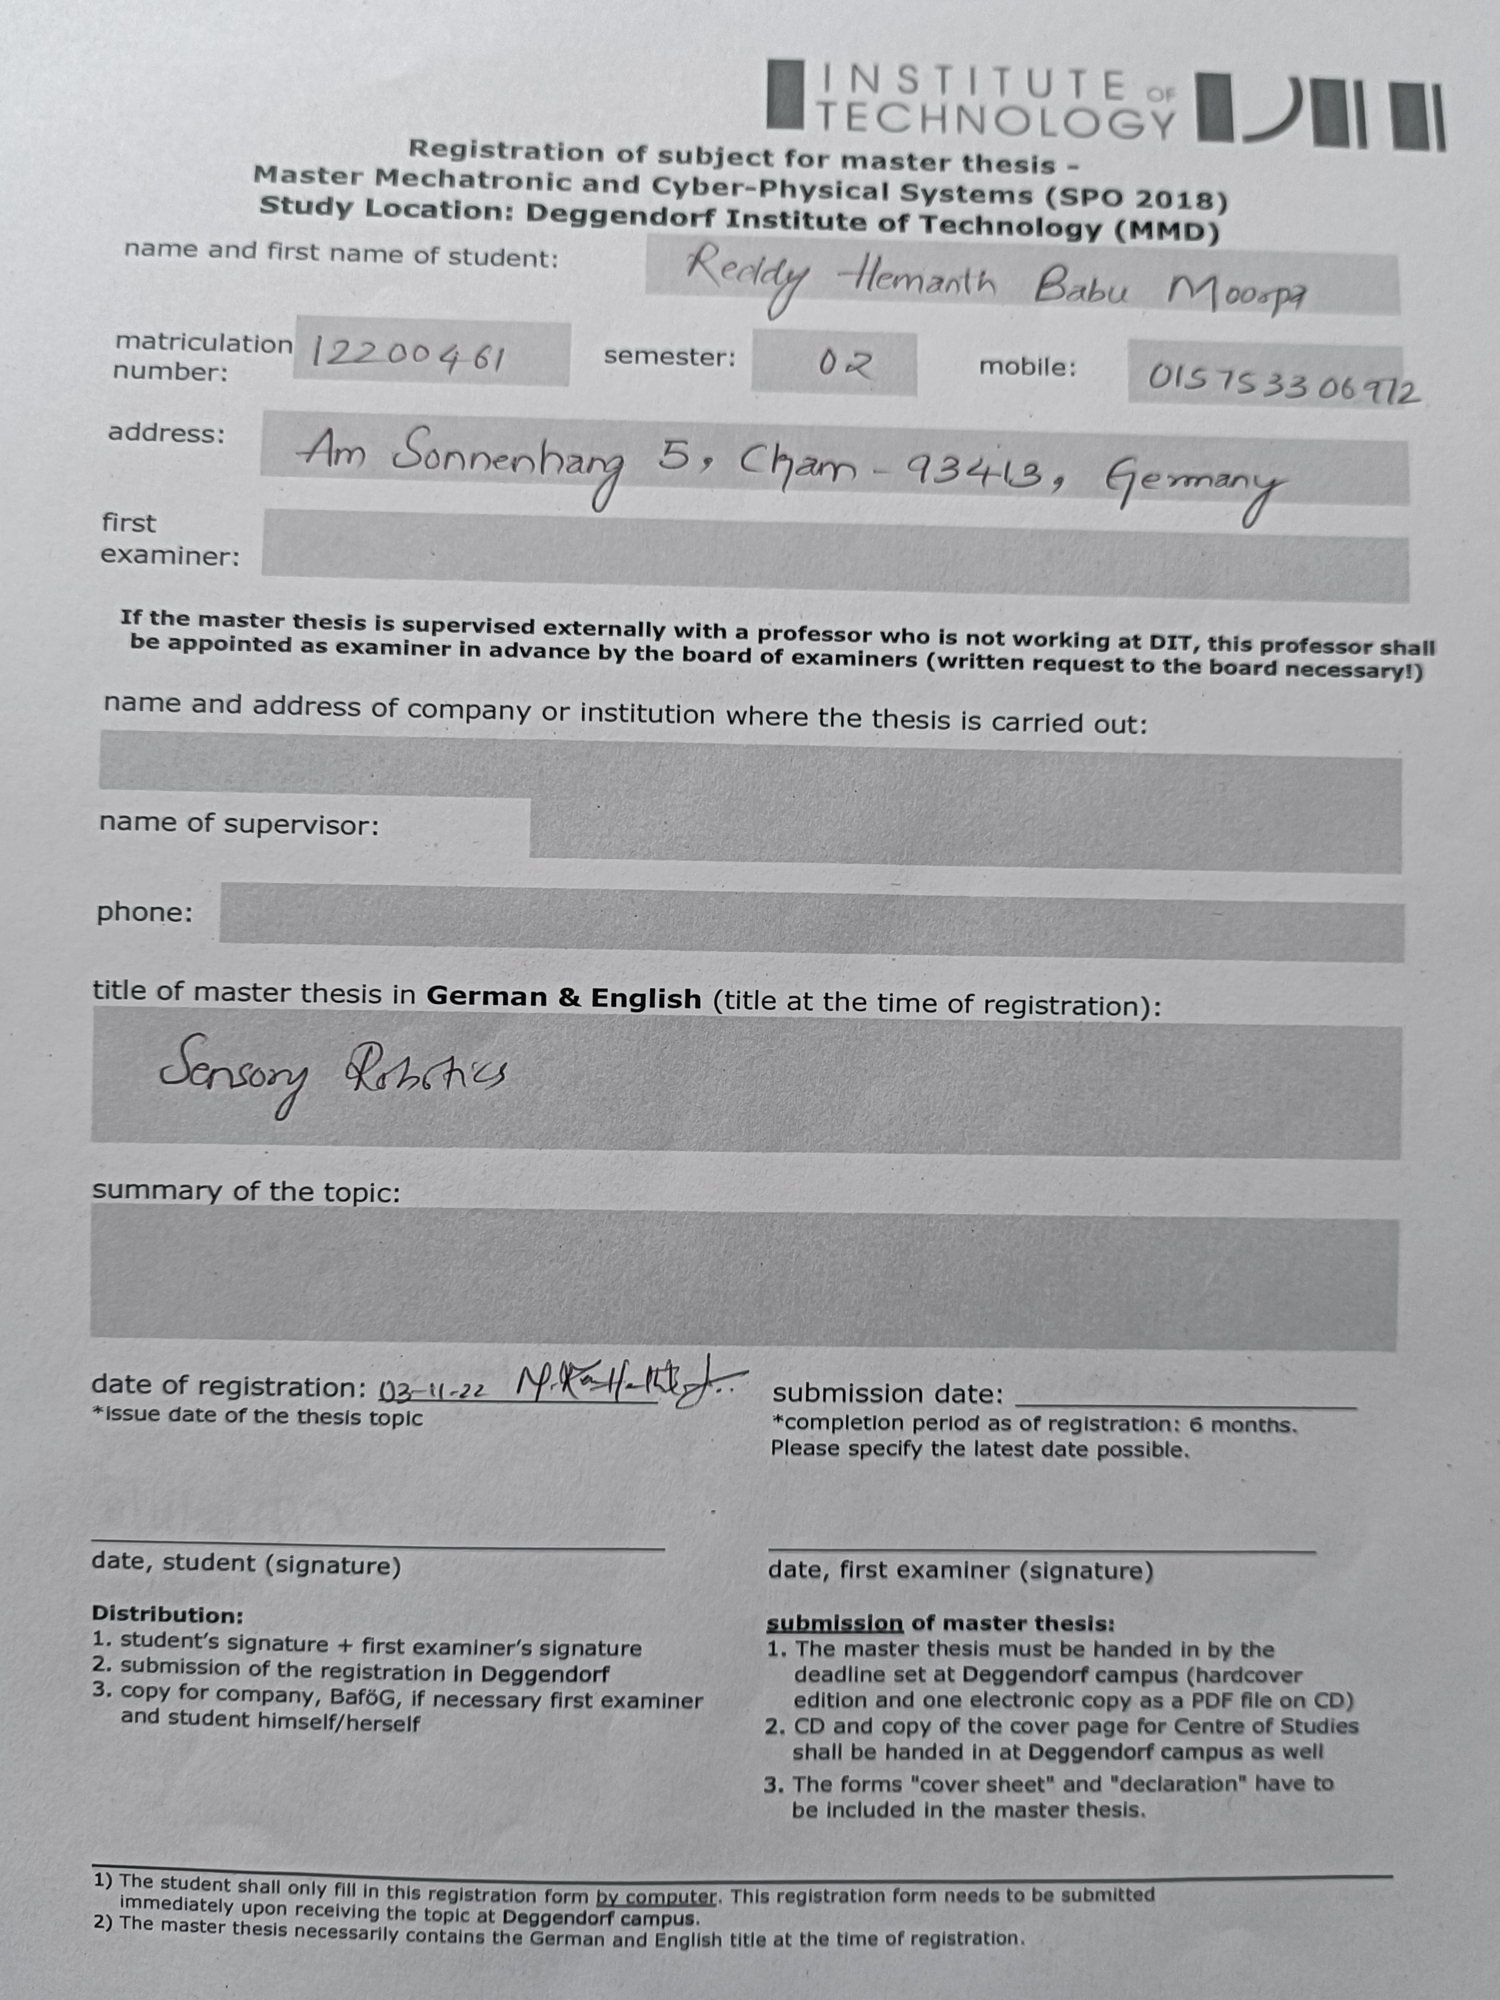 INSTITUTE OF
TECHNOLOGY
Registration of subject for master thesis -
Master Mechatronic and Cyber-Physical Systems (SPO 2018)
Study Location: Deggendorf Institute of Technology (MMD)
name and first name of student: Reddy Hemanth Babu Moorpa
matriculation number: 12200461 semester: 02 mobile: 015753306972
address: Am Sonnenhang 5, Cham - 93413, Germany
first
examiner:
If the master thesis is supervised externally with a professor who is not working at DIT, this professor shall
be appointed as examiner in advance by the board of examiners (written request to the board necessary!)
name and address of company or institution where the thesis is carried out:
name of supervisor:
phone:
title of master thesis in German & English (title at the time of registration):
Sensory Robotics
summary of the topic:
date of registration: 03-11-22
*issue date of the thesis topic
submission date:
*completion period as of registration: 6 months.
Please specify the latest date possible.
date, student (signature)
date, first examiner (signature)
Distribution:
1. student's signature + first examiner's signature
2. submission of the registration in Deggendorf
3. copy for company, BaföG, if necessary first examiner
and student himself/herself
submission of master thesis:
1. The master thesis must be handed in by the
deadline set at Deggendorf campus (hardcover
edition and one electronic copy as a PDF file on CD)
2. CD and copy of the cover page for Centre of Studies
shall be handed in at Deggendorf campus as well
3. The forms "cover sheet" and "declaration" have to
be included in the master thesis.
1) The student shall only fill in this registration form by computer. This registration form needs to be submitted
immediately upon receiving the topic at Deggendorf campus.
2) The master thesis necessarily contains the German and English title at the time of registration.